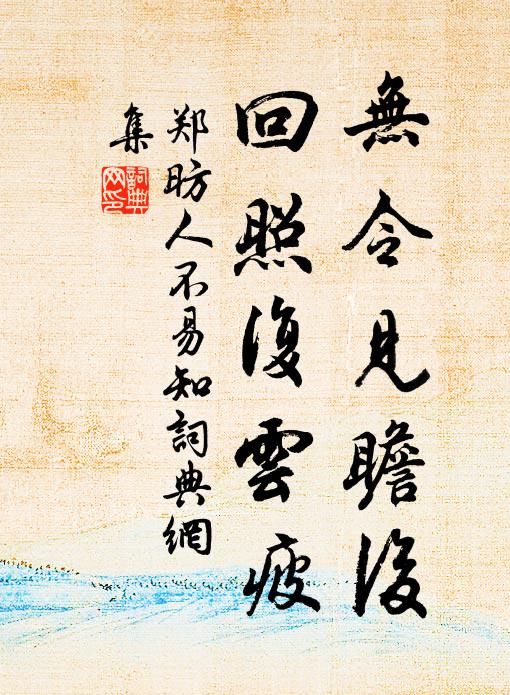 無令見瞻後
回照復雲疲
郑昉人不易知詞典網
集
詞典
网印